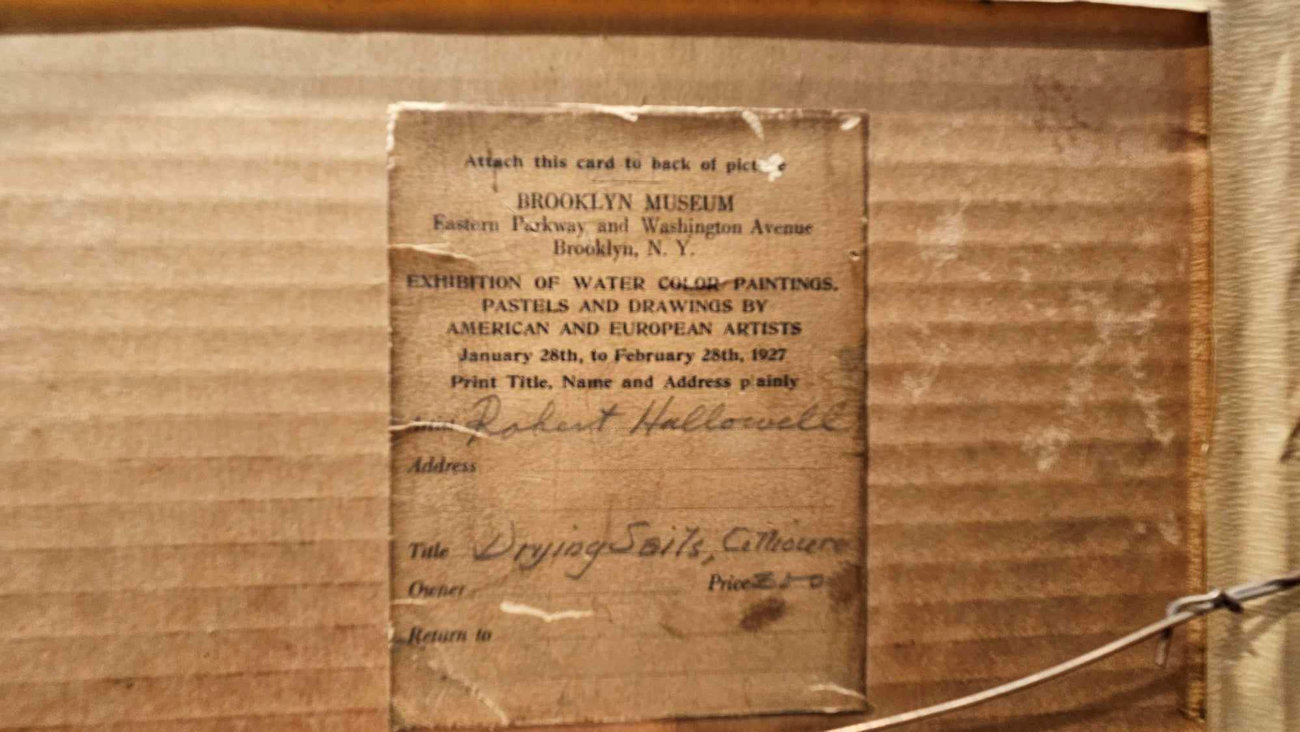 Attach this card to back of picture
BROOKLYN MUSEUM
Eastern Parkway and Washington Avenue
Brooklyn, N. Y.
EXHIBITION OF WATER COLOR PAINTINGS,
PASTELS AND DRAWINGS BY
AMERICAN AND EUROPEAN ARTISTS
January 28th, to February 28th, 1927
Print Title, Name and Address plainly
Robert Hallowell
Address
Title Drying Sails,
Owner Price
Return to